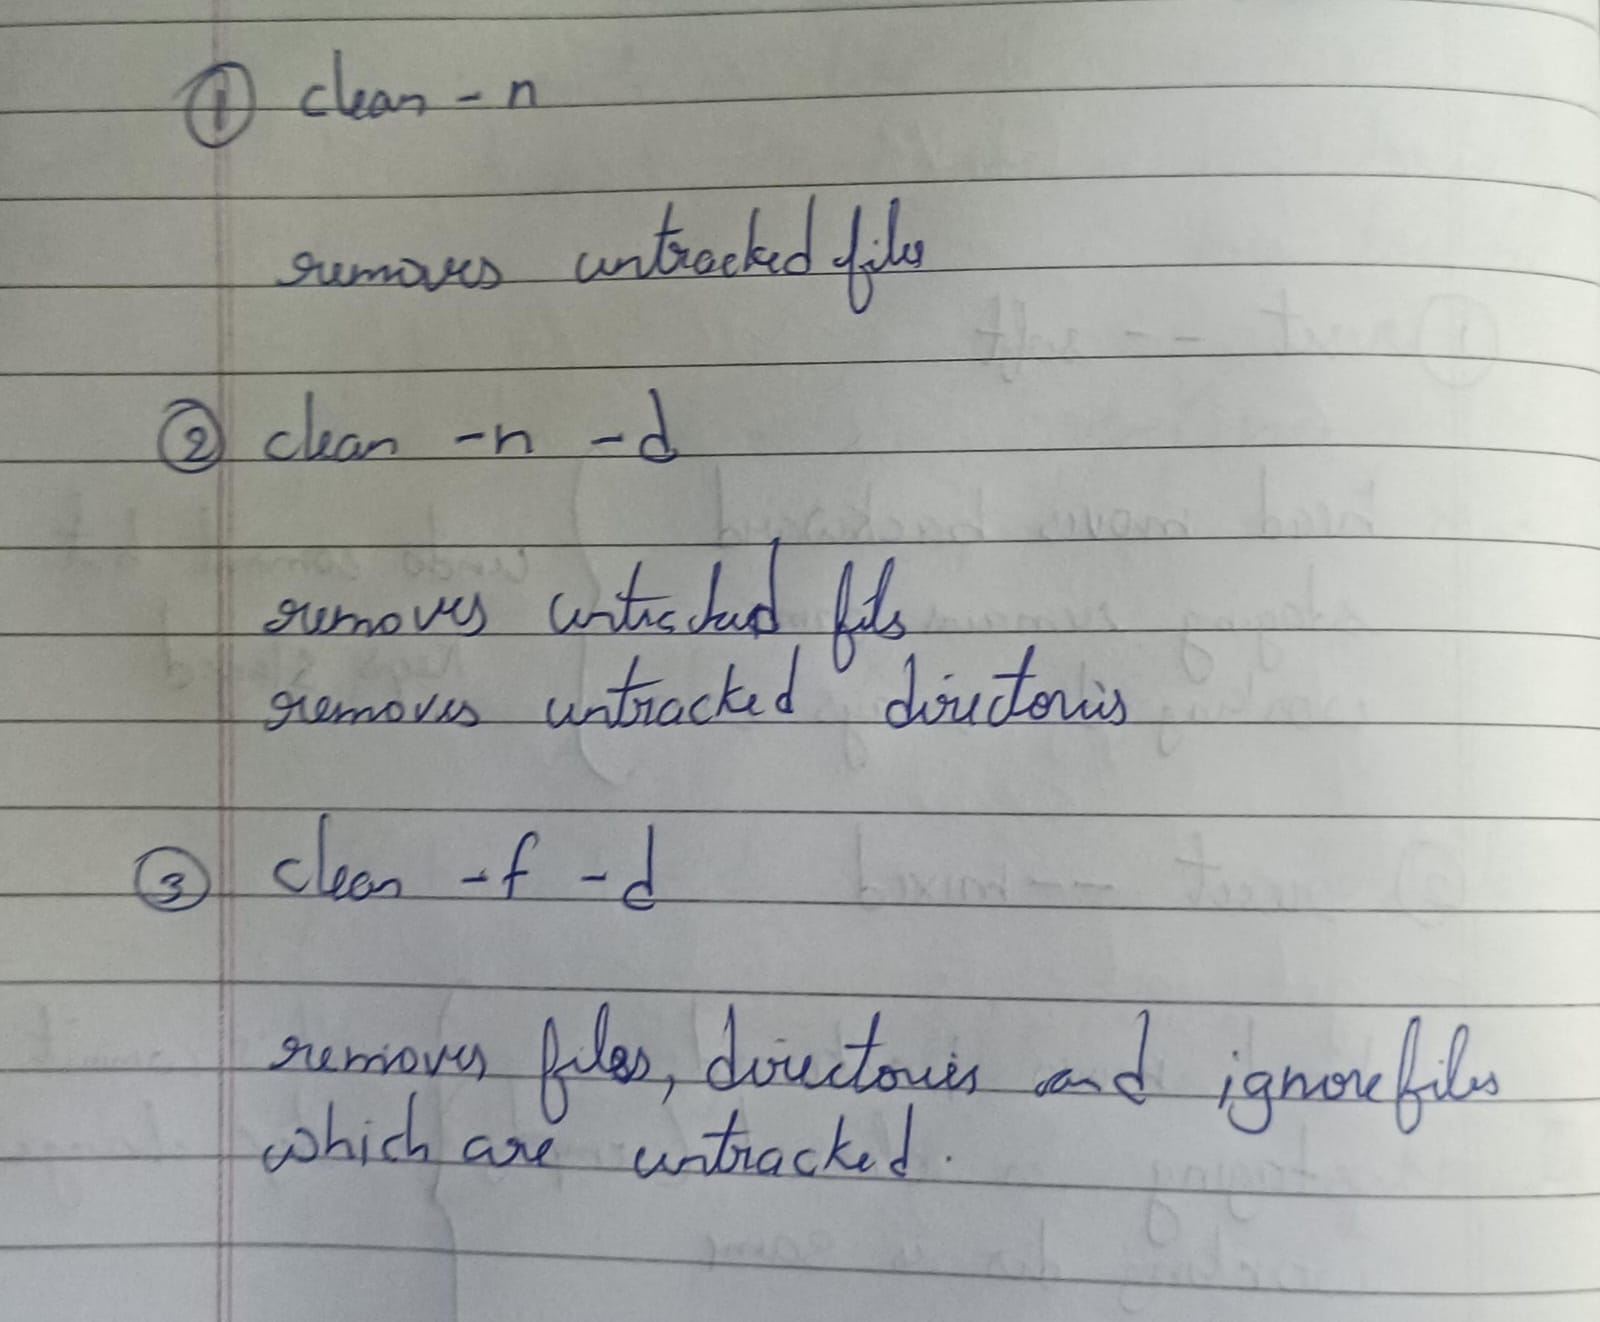 ① clean -n
removes untracked files
② clean -n -d
removes untracked files
removes untracked directories
③ clean -f -d
removes files, directories and ignore files
which are untracked.